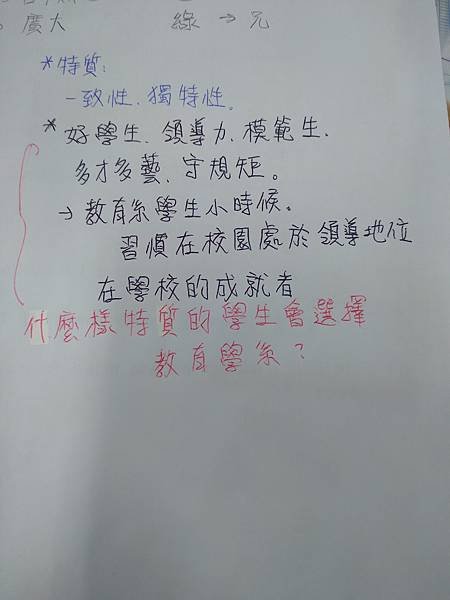 廣大 綠→元
*特質:
一致性、獨特性。
*好學生、領導力、模範生、
多才多藝、守規矩。
→教育系學生小時候。
習慣在校園處於領導地位
在學校的成就者
什麼樣特質的學生會選擇
教育學系?